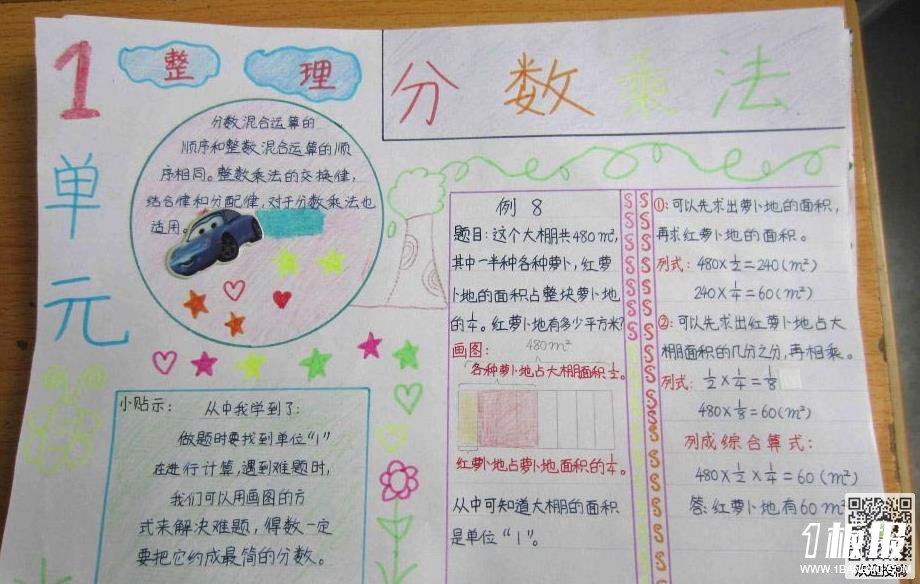 1
单
元
整 理
分 数 乘 法
分数混合运算的
顺序和整数混合运算的顺
序相同。整数乘法的交换律,
结合律和分配律,对于分数乘法也
适用。
小贴示：
从中我学到了：
做题时要找到单位“1”
在进行计算,遇到难题时,
我们可以用画图的方
式来解决难题，得数一定
要把它约成最简的分数。
例 8
题目：这个大棚共480m²,
其中一半种各种萝卜,红萝
卜地的面积占整块萝卜地
的1/4。红萝卜地有多少平方米?
画图：
480m²
各种萝卜地占大棚面积1/2。
红萝卜地占萝卜地面积的1/4。
从中可知道大棚的面积
是单位“1”。
①:可以先求出萝卜地的面积,
再求红萝卜地的面积。
列式：480×1/2=240(m²)
240×1/4=60(m²)
②:可以先求出红萝卜地占大
棚面积的几分之分,再相乘。
列式：1/2×1/4=1/8
480×1/8=60(m²)
列成综合算式：
480×1/2×1/4=60(m²)
答:红萝卜地有60m²
1板报
WWW.1BANBAO.COM
欢迎投稿